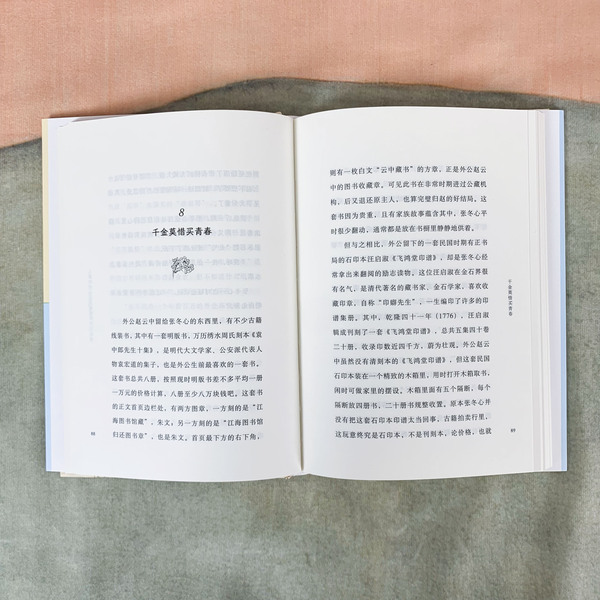 8
千金莫惜买青春
外公赵云中留给张冬心的东西里，有不少古籍
线装书，其中有一套明版书，万历绣水周氏刻本《袁
中郎先生十集》，是明代大文学家、公安派代表人
物袁宏道的集子，也是外公生前最喜欢的一套书。
这套书总共八册，按照现时明版书差不多平均一册
一万元的价格计算，八册至少八万块钱吧。这套书
的正文首页边栏处，有两方图章，一方刻的是“江
海图书馆藏”，朱文。另一方刻的是“江海图书馆
归还图书章”，也是朱文。首页最下方的右下角，
则有一枚白文“云中藏书”的方章，正是外公赵云
中的图书收藏章，可见此书在非常时期进过公藏机
构，后又退还原主人，也算完璧归赵的好结局。这
套书因为贵重，且有家族故事蕴含其中，张冬心平
时很少翻动，通常都是放在书橱里静静地供着。
但与之相比，外公留下的一套民国时期有正书
局的石印本汪启淑《飞鸿堂印谱》，却是张冬心经
常拿出来翻阅的励志读物。这位汪启淑在金石界很
有名气，是清代著名的藏书家、金石学家，喜欢收
藏印章，自称“印癖先生”，一生编印了许多的印
谱集册。其中，乾隆四十一年（1776），汪启淑
辑成刊刻了一套《飞鸿堂印谱》，总共五集四十卷
二十册，收录印数近四千方，蔚为壮观。外公赵云
中虽然没有清刻本的《飞鸿堂印谱》，但这套民国
石印本装在一个精致的木箱里，用时打开木箱取书，
闲时可做家里的摆设。木箱里面有五个隔断，每个
隔断放四册书，二十册书规整收置。原本张冬心并
没有把这套石印本印谱太当回事，古籍拍卖行里，
这玩意终究是石印本，不是刊刻本，论价格，也就
千金莫惜买青春
68
69